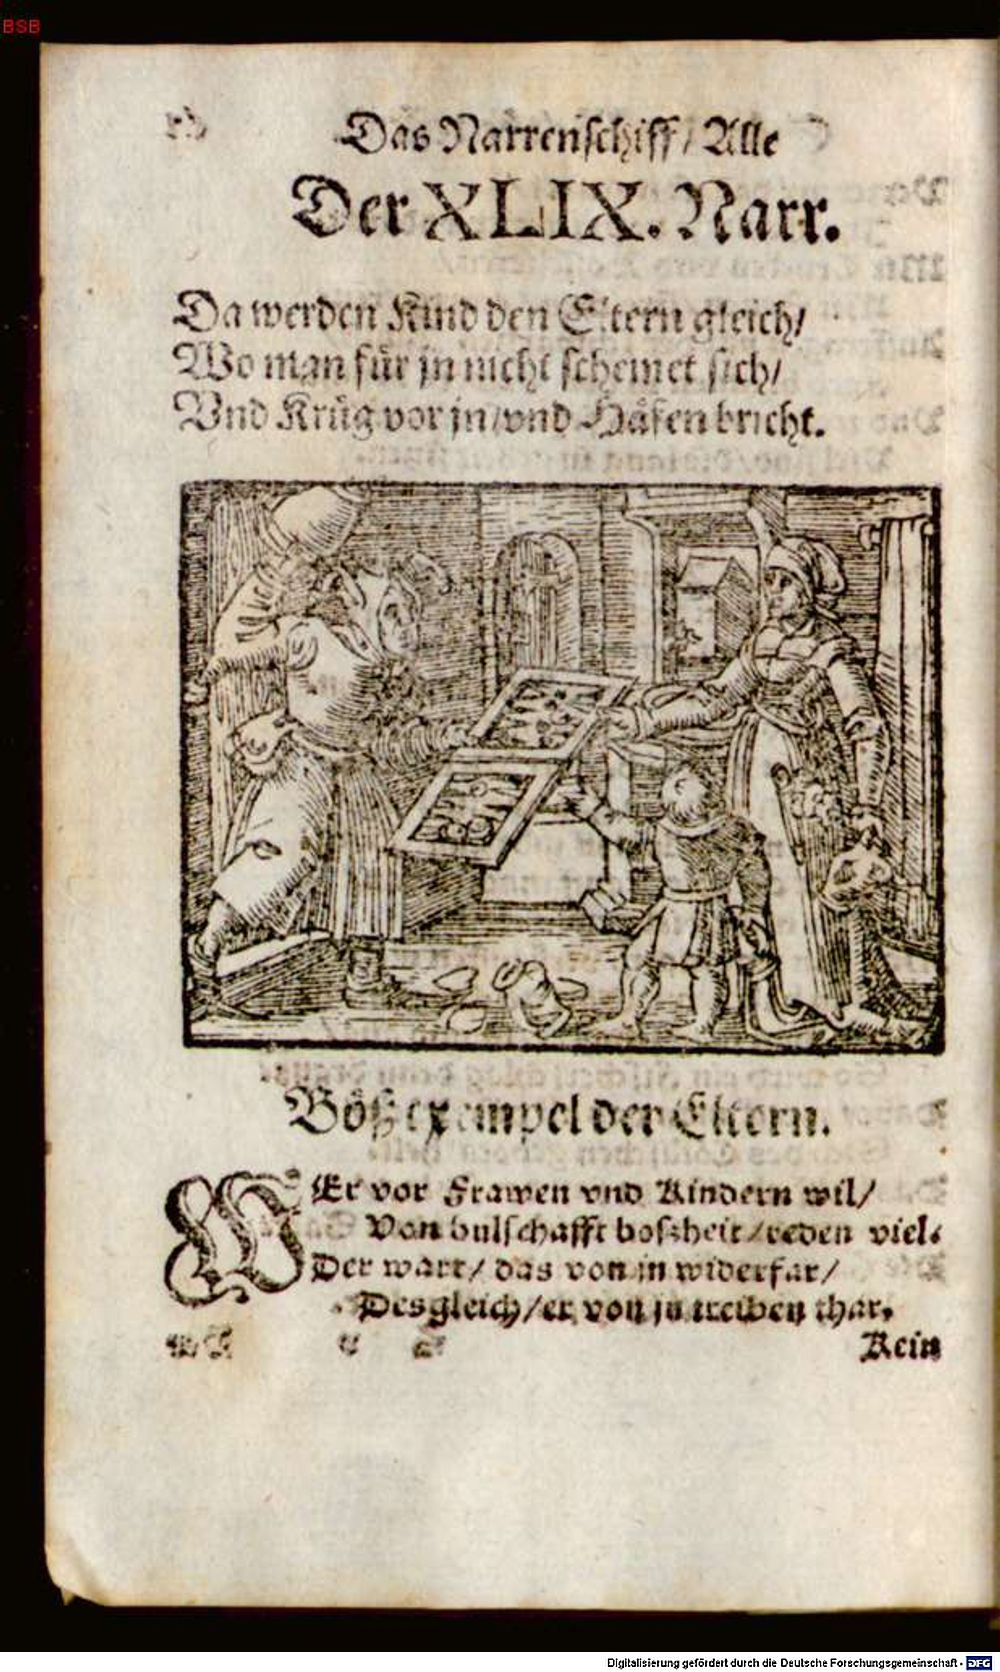 BSB
Das Narrenschiff / Alle
Der XLIX. Narr.
Da werden Kind den Eltern gleich/
Wo man für jn nicht schemet sich/
Vnd Krüg vor jn/vnd Häfen bricht.
Böß exempel der Eltern.
WEr vor Frawen vnd Kindern wil/
Von bulschafft boßheit/reden viel.
Der wart/ das von in widerfar/
Desgleich/er von jn treiben thar.
Kein
Digitalisierung gefördert durch die Deutsche Forschungsgemeinschaft - DFG